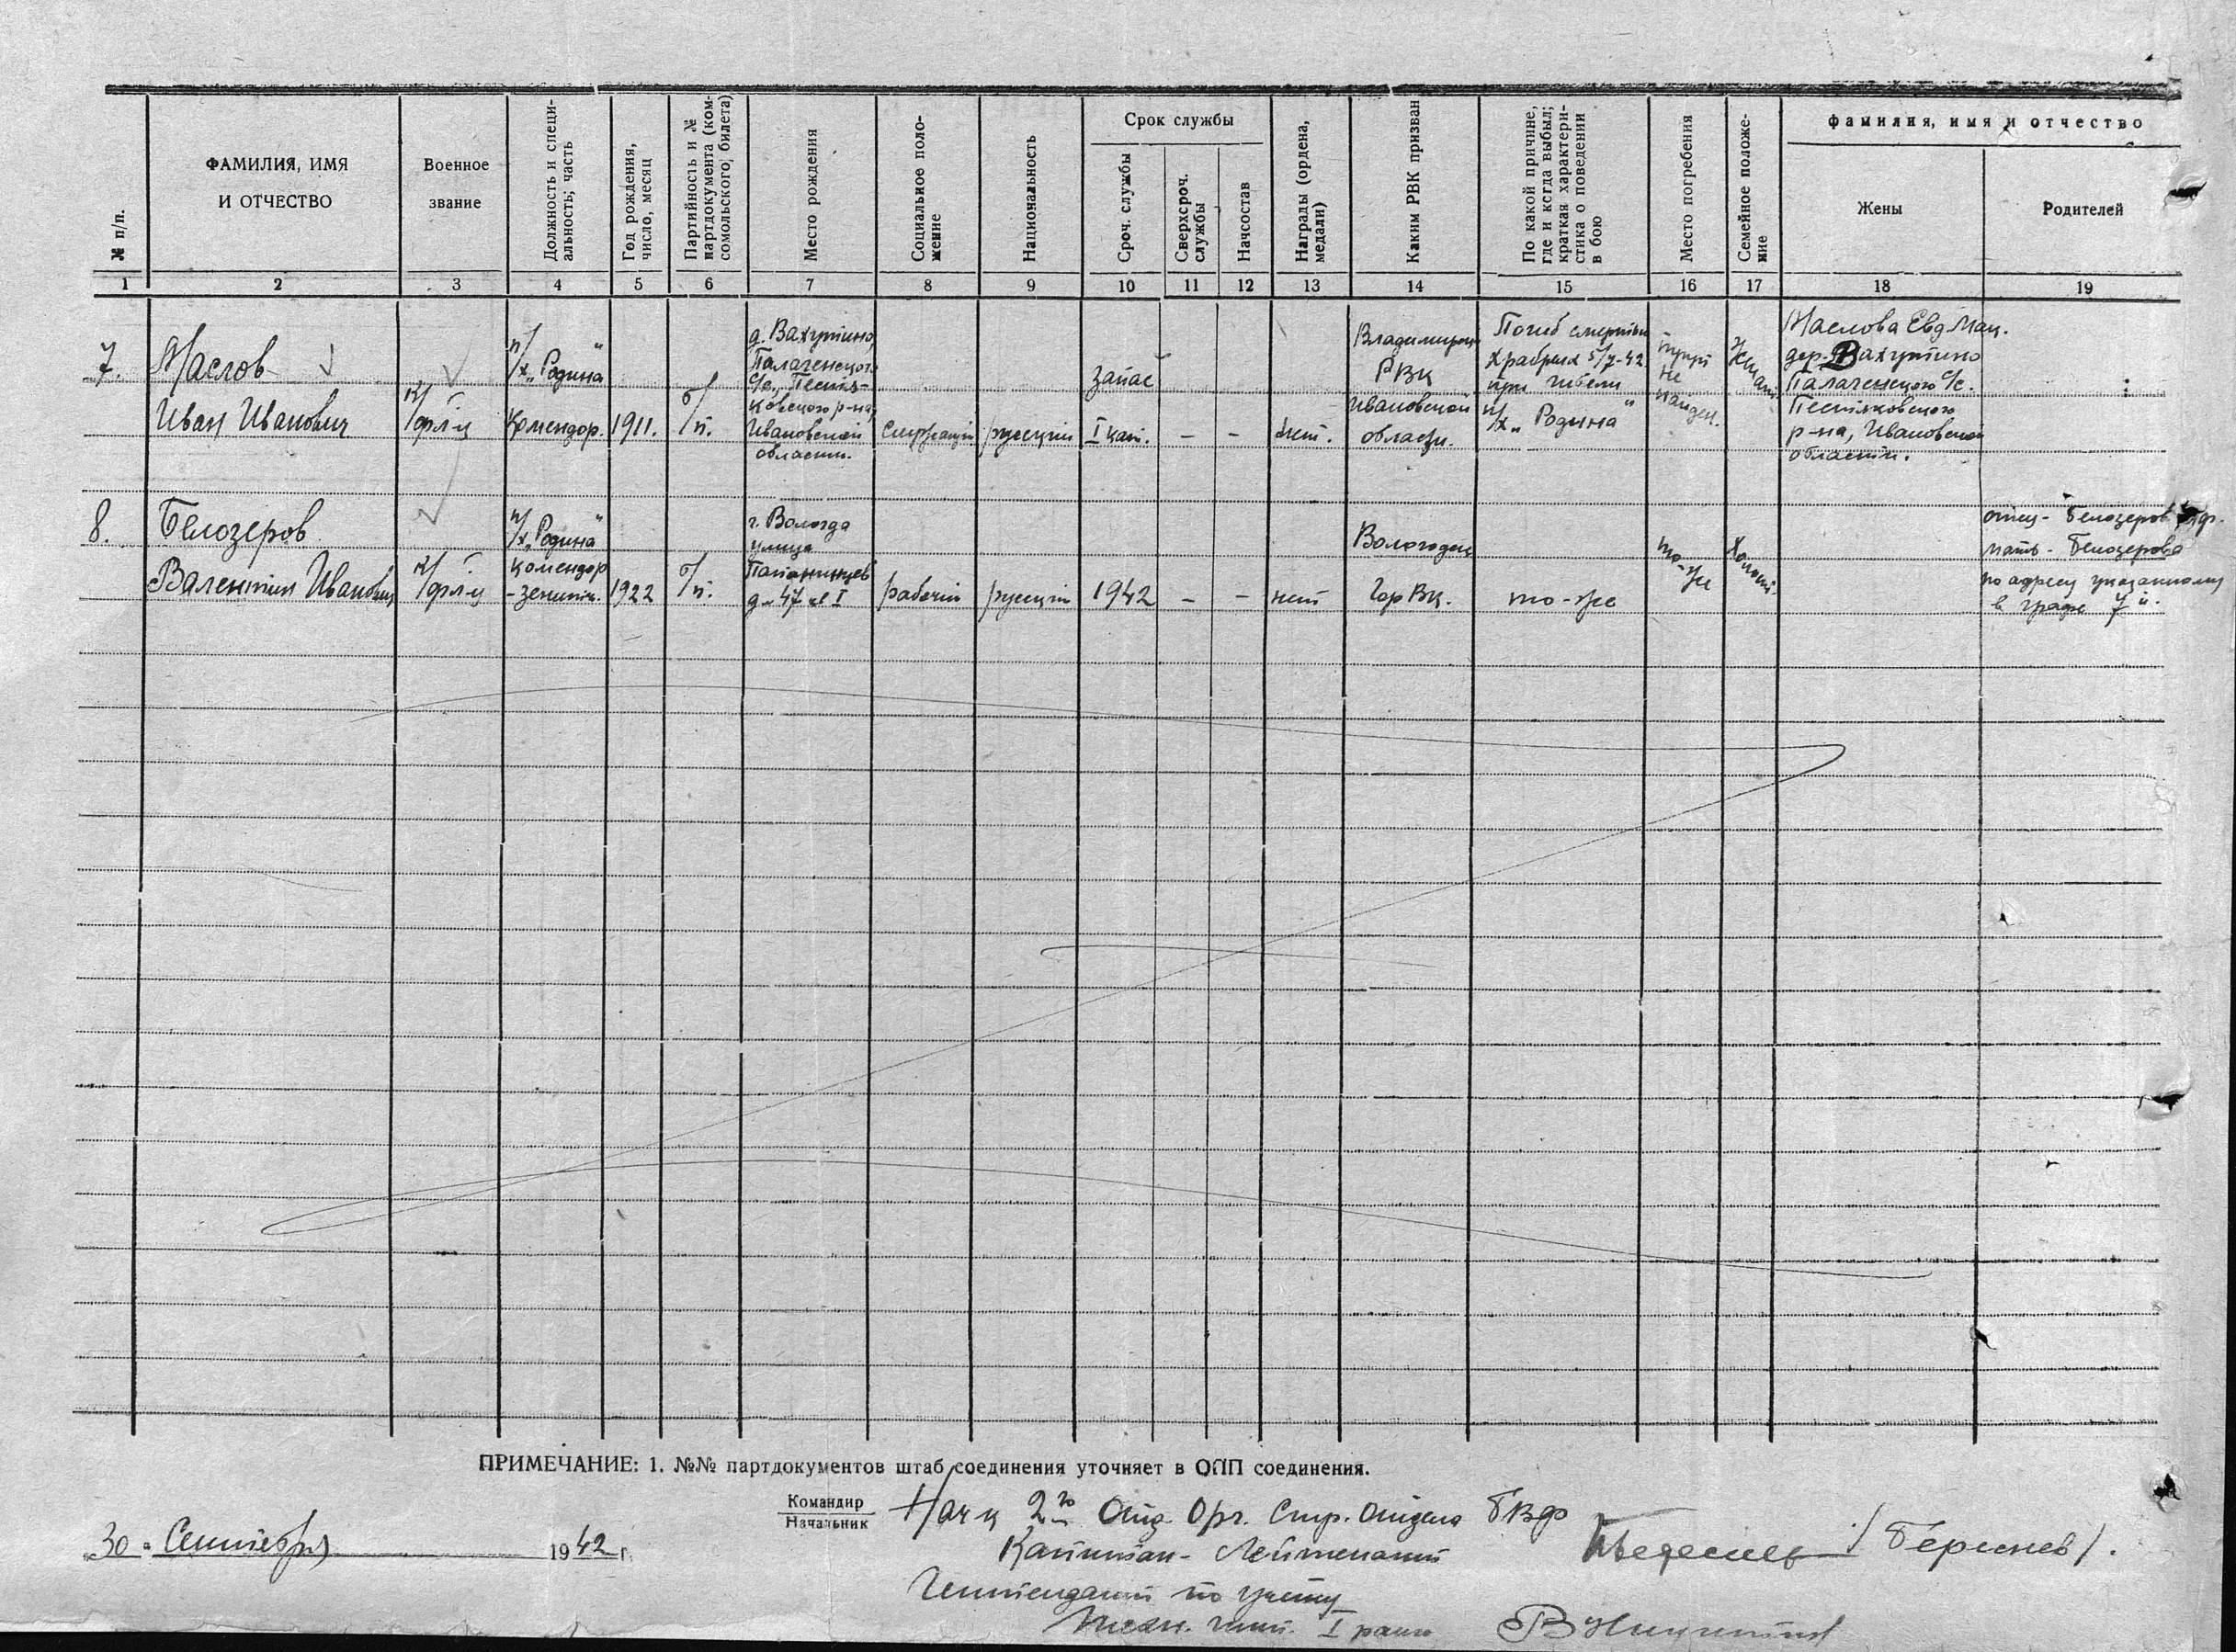 № п/п.
ФАМИЛИЯ, ИМЯ
И ОТЧЕСТВО
Военное
звание
Должность и специ-
альность; часть
Год рождения,
число, месяц
Партийность и №
партдокумента (ком-
сомольского, билета)
Место рождения
Социальное поло-
жение
Национальность
Срок службы
Сроч. службы
Сверхсроч.
службы
Начсостав
Награды (ордена,
медали)
Каким РВК призван
По какой причине,
где и когда выбыл;
краткая характери-
стика о поведении
в бою
Место погребения
Семейное положе-
ние
фамилия, имя и отчество
Жены
Родителей
1 2 3 4 5 6 7 8 9 10 11 12 13 14 15 16 17 18 19
7.
Маслов
Иван Иванович
к/фл-ц
п/х „Родина“
комендор.
1911.
б/п.
д. Вахутино,
Палагенского
с/с., Пестя-
ковского р-на,
Ивановской
области.
служащий
русский
запас
I кат.
-
-
нет.
Владимирск
РВК
Ивановской
области.
Погиб смертью
храбрых 5/7-42
при гибели
п/х „Родина“
труп
не
найден.
Женат
Маслова Евд.
дер. Вахутино
Палагенского с/с.
Пестяковского
р-на, Ивановской
области.
8.
Белозеров
Валентин Иванович
к/фл-ц
п/х „Родина“
комендор
-зенитч.
1922
б/п.
г. Вологда
улица
Папанинцев
д. 47 кв I
рабочий
русский
1942
-
-
нет
Вологодск
ГорВК.
то-же
то-же
Холост.
отец - Белозеров
мать - Белозерова
по адресу указанному
в графе 7й.
ПРИМЕЧАНИЕ: 1. №№ партдокументов штаб соединения уточняет в ОПП соединения.
Командир
Начальник
Нач-к 2го Отд. Орг. Стр. Отдела БВФ
Капитан-Лейтенант
„30“ Сентября 1942 г.
Интендант по учету
техн. инт. I ранга